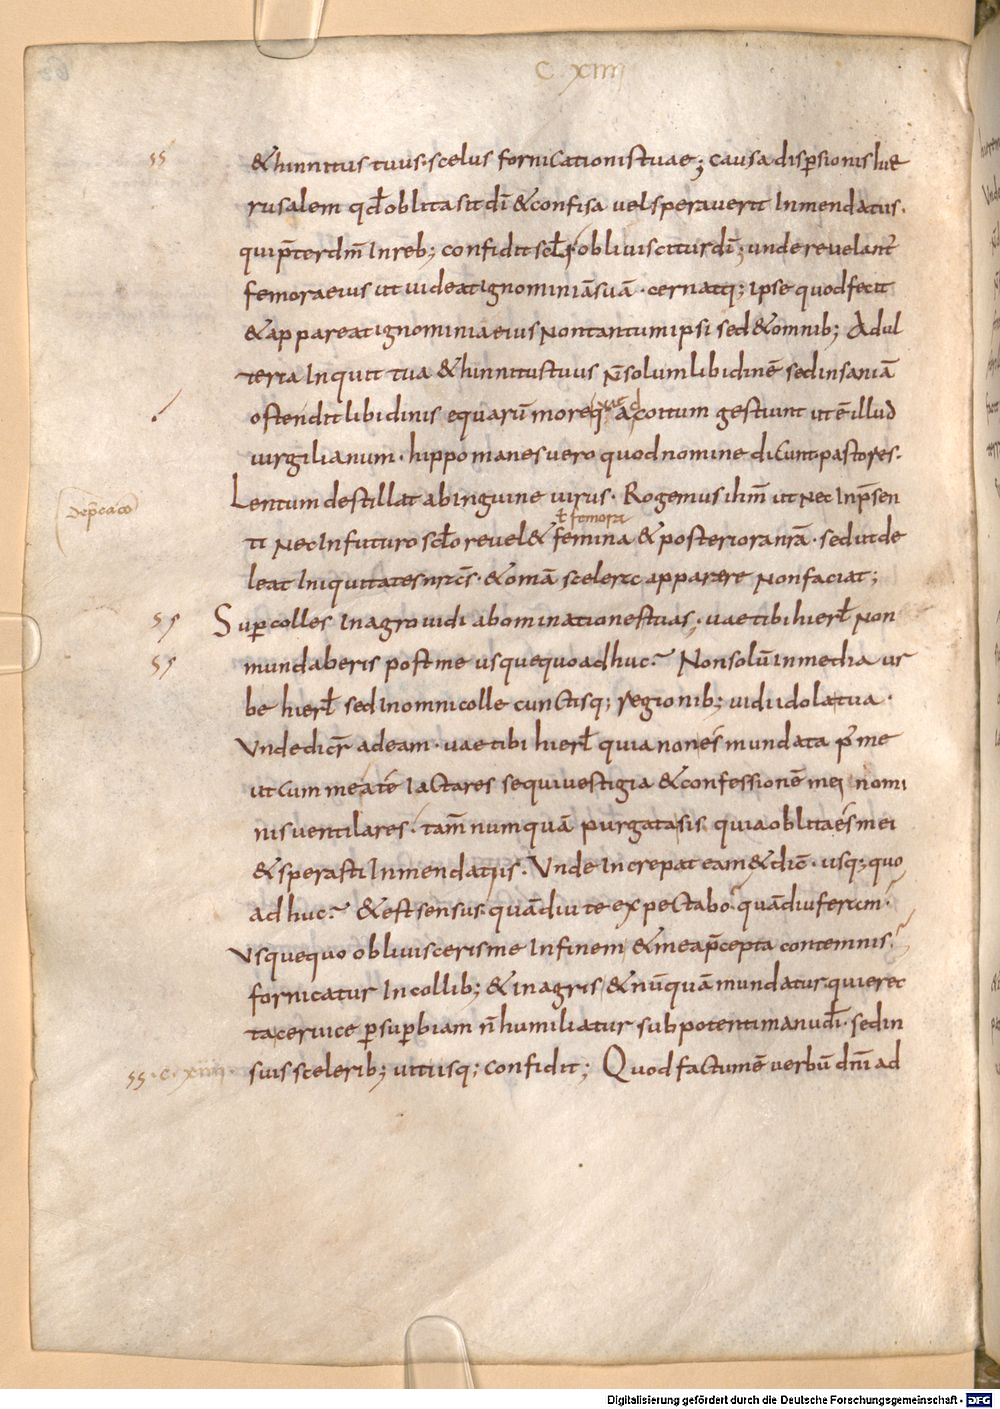 C XIIII
& hinnitus tuus. scelus fornicationis tuae; causa disp̄sionis hie
rusalem qđ oblita sit dī & confisa vel speraverit In mendatiis.
qui p̄ter dm̄ In reb; confidit sc̄lo obliviscitur dī; unde revelant̄
femora eius ut uideat ignominiā suā. cernatq; ipse quod fecit
& appareat ignominia eius Non tantum ipsi sed & omnib; Adul
teria Inquit tua & hinnitus tuus n̄ solum libidinē sed insaniā
ostendit libidinis equarū more q ad coitum gestiunt ut ē illud
uirgilianum. hippomanes vero quod nomine dicunt pastores.
Lentum destillat ab inguine uirus. Rogemus ihm̄ ut Nec In p̄sen
ti Nec In futuro sc̄lo revel& femina & posteriora nr̄a. sed ut de
ł femora
dep̄catio
leat Iniquitates nr̄as. & omā scelere apparere Non faciat;
Sup colles In agro vidi abominationes tuas. uae tibi hierł Non
mundaberis post me usquequo adhuc? Non solū In media ur
be hierł sed In omni colle cunctisq; regionib; vidi idola tua.
Unde dicit̄ ad eam. uae tibi hierł quia non es mundata p̄ me
ut cum mea te Iactares sequi vestigia & confessionē mei nomi
nis ventilares. tam̄ numquā purgata sis quia oblita es mei
& sperasti In mendatiis. Unde Increpat eam & dic̄. usq; quo
adhuc? & est sensus. quādiu te expectabo. quādiu feram.
Usquequo oblivisceris me In finem & mea p̄cepta contemnis.
fornicatur In collib; & in agris & nūquā mundatur. qui erec
ta cervice p sup̄biam n̄ humiliatur sub potenti manu dī. sed in
suis scelerib; uitiisq; confidit; Quod factum ē verbū dnī ad
ss. c. xiiii.
Digitalisierung gefördert durch die Deutsche Forschungsgemeinschaft - DFG